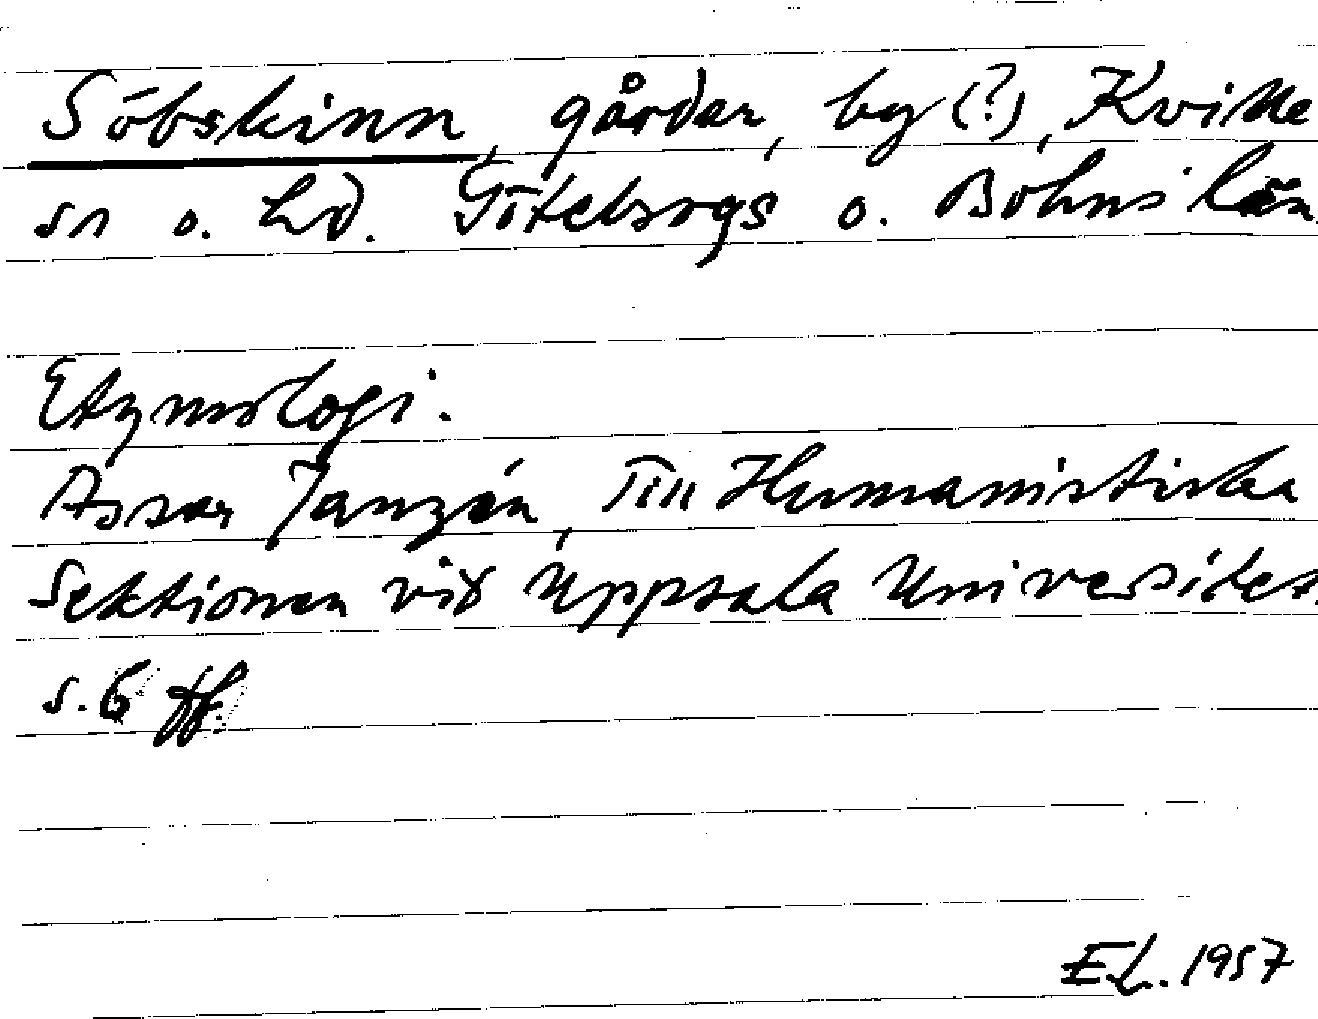 Söbskinn, gårdar, by (?), Kville
sn o. hd. Göteborgs o. Bohus län
Etymologi.
Assar Janzén, Till Humanistiska
Sektionen vid Uppsala Universitet.
s. 6 ff.
E.L. 1957